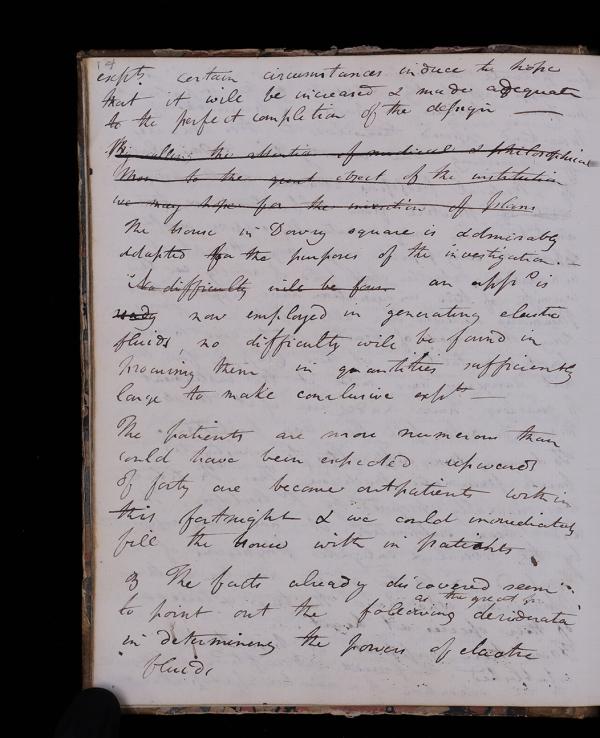 14
expts certain circumstances induce the hope
that it will be increased & made adequate
to the perfect completion of the design —
the attention of medical & philosophical
Men to the great object of the institution
we may hope for the invention of
The house in Dowry square is admirably
adapted for the purposes of the investigation. —
No difficulty will be found an appo is
ready now employed in generating elastic
fluids, no difficulty will be found in
procuring them in quantities sufficiently
large to make conclusive expts —
The patients are more numerous than
could have been expected upwards
of forty are become outpatients within
this fortnight & we could immediately
fill the house with in patients
The facts already discovered seem
as the great
to point out the following desiderata
in determining the powers of elastic
fluids